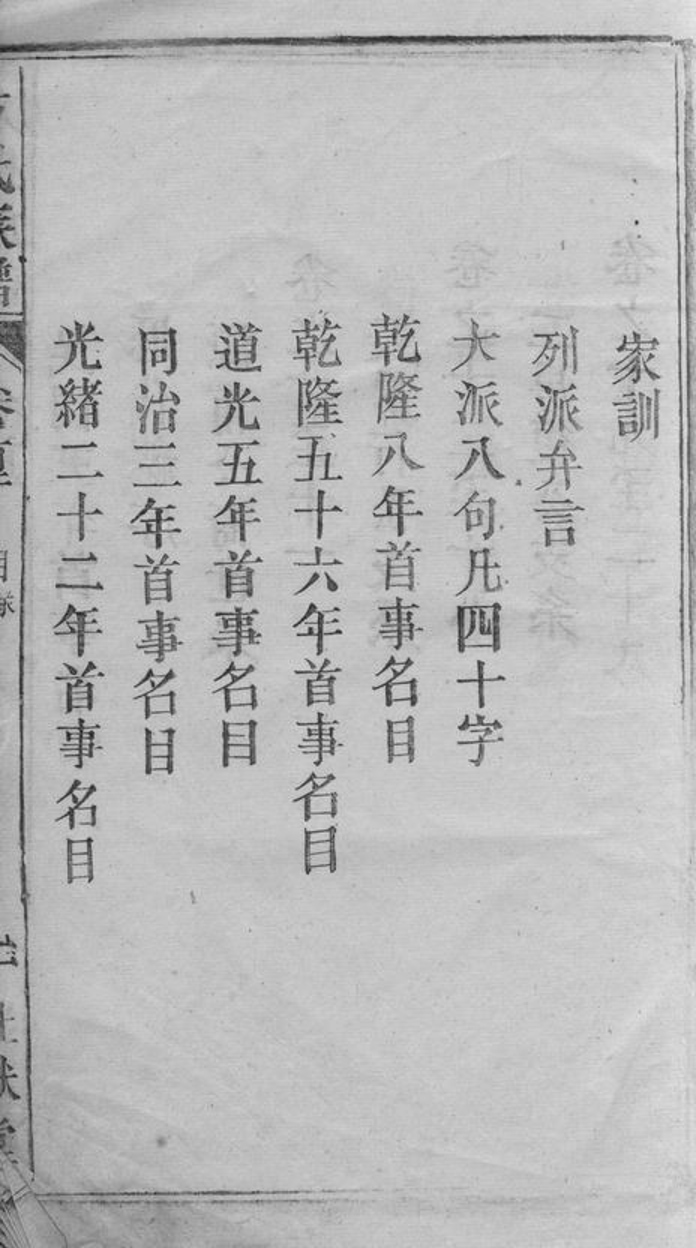 家訓
列派弁言
大派八句凡四十字
乾隆八年首事名目
乾隆五十六年首事名目
道光五年首事名目
同治三年首事名目
光緒二十二年首事名目
氏族譜
目錄